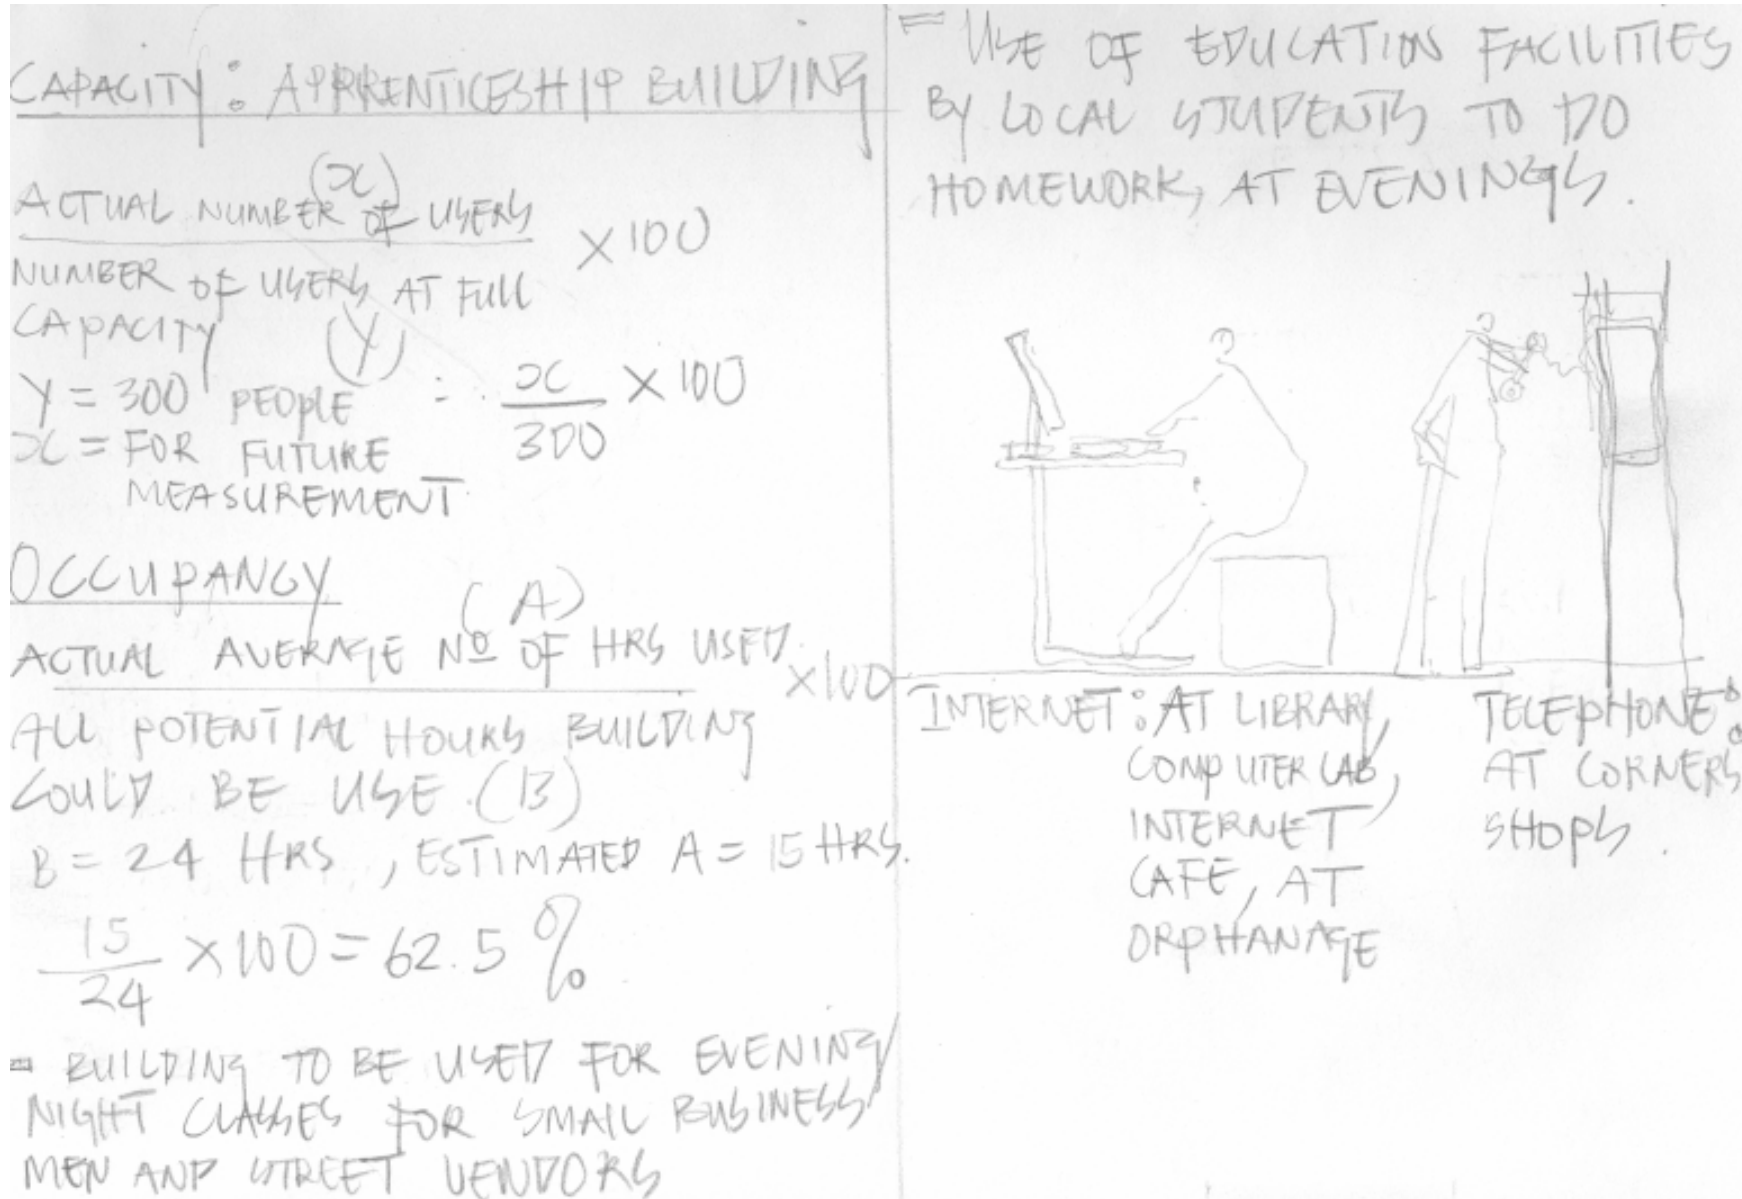 CAPACITY: APPRENTICESHIP BUILDING
ACTUAL NUMBER OF USERS (x)
NUMBER OF USERS AT FULL
CAPACITY (Y)
× 100
Y = 300 PEOPLE
x = FOR FUTURE
MEASUREMENT
∴ x/300 × 100
OCCUPANCY
(A)
ACTUAL AVERAGE No OF HRS USED
×100
ALL POTENTIAL HOURS BUILDING
COULD BE USE (B)
B = 24 HRS, ESTIMATED A = 15 HRS.
15/24 × 100 = 62.5 %
- BUILDING TO BE USED FOR EVENING/
NIGHT CLASSES FOR SMALL BUSINESS
MEN AND STREET VENDORS
- USE OF EDUCATION FACILITIES
BY LOCAL STUDENTS TO DO
HOMEWORK, AT EVENINGS.
INTERNET: AT LIBRARY,
COMPUTER LAB,
INTERNET
CAFE, AT
ORPHANAGE
TELEPHONE:
AT CORNERS
SHOPS.